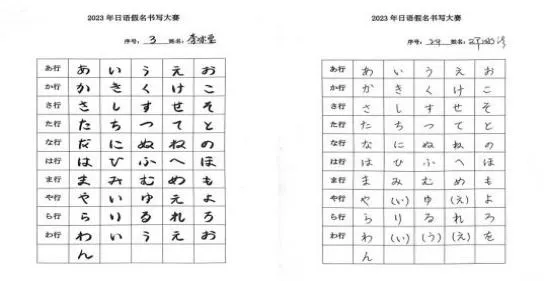 2023年日语假名书写大赛
序号: 3 姓名:
あ行 あ い う え お
か行 か き く け こ
さ行 さ し す せ そ
た行 た ち つ て と
な行 な に ぬ ね の
は行 は ひ ふ へ ほ
ま行 ま み む め も
や行 や い ゆ え よ
ら行 ら り る れ ろ
わ行 わ い う え お
ん
2023年日语假名书写大赛
序号: 29 姓名:
あ行 あ い う え お
か行 か き く け こ
さ行 さ し す せ そ
た行 た ち つ て と
な行 な に ぬ ね の
は行 は ひ ふ へ ほ
ま行 ま み む め も
や行 や (い) ゆ (え) よ
ら行 ら り る れ ろ
わ行 わ (い) (う) (え) を
ん